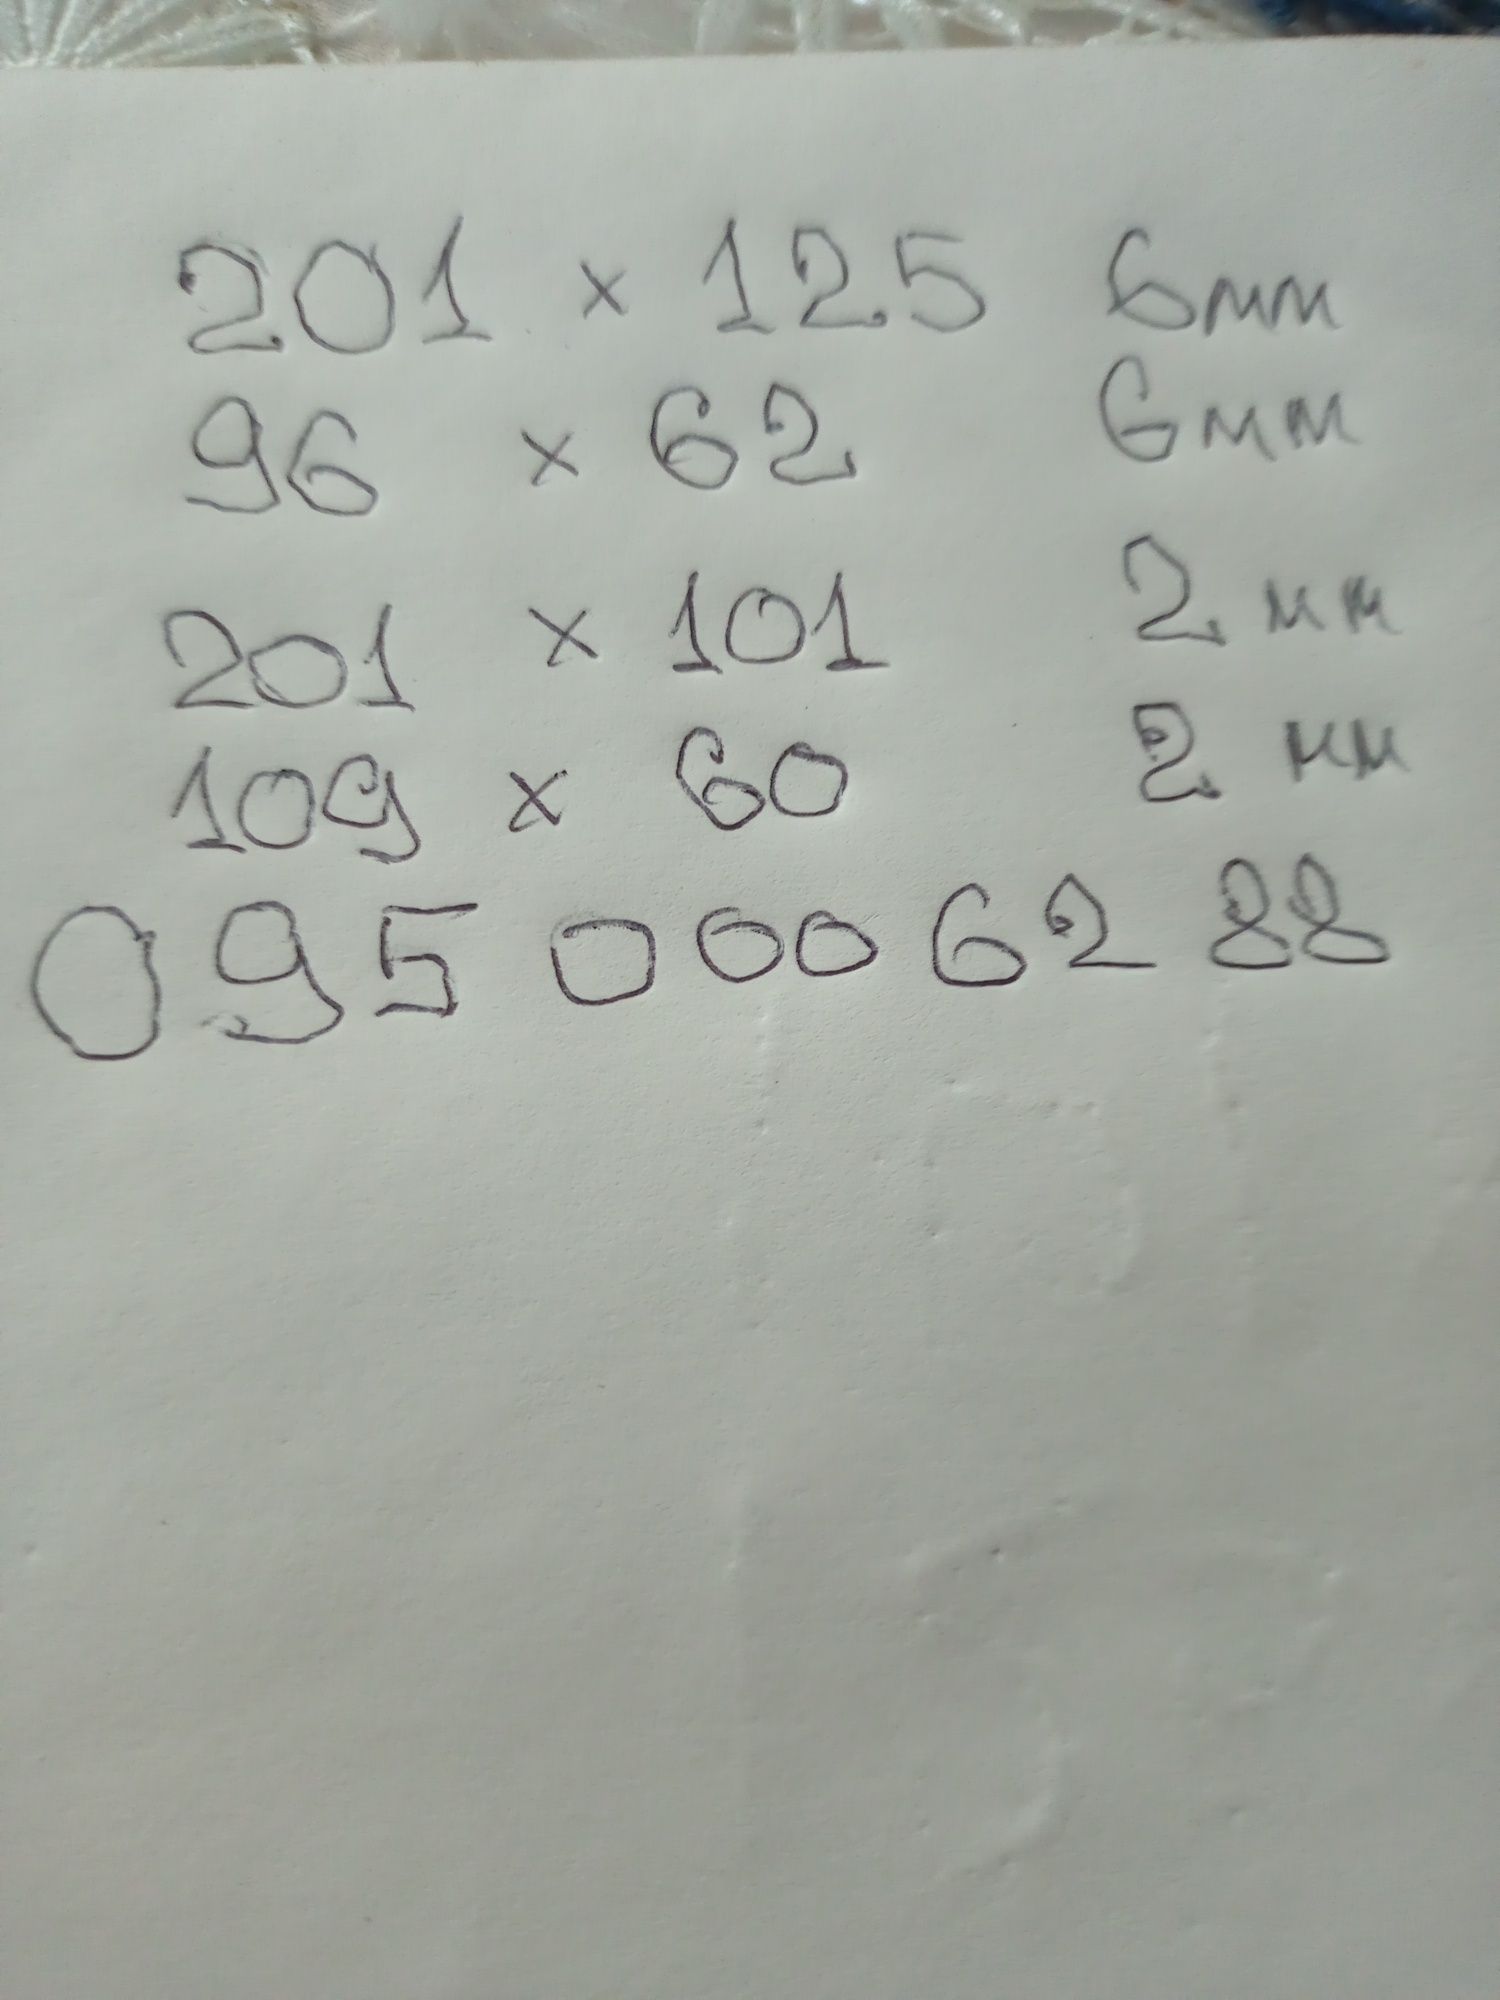 201 × 125 6мм
96 × 62 6мм
201 × 101 2 мм
109 × 60 2 мм
095 000 62 88